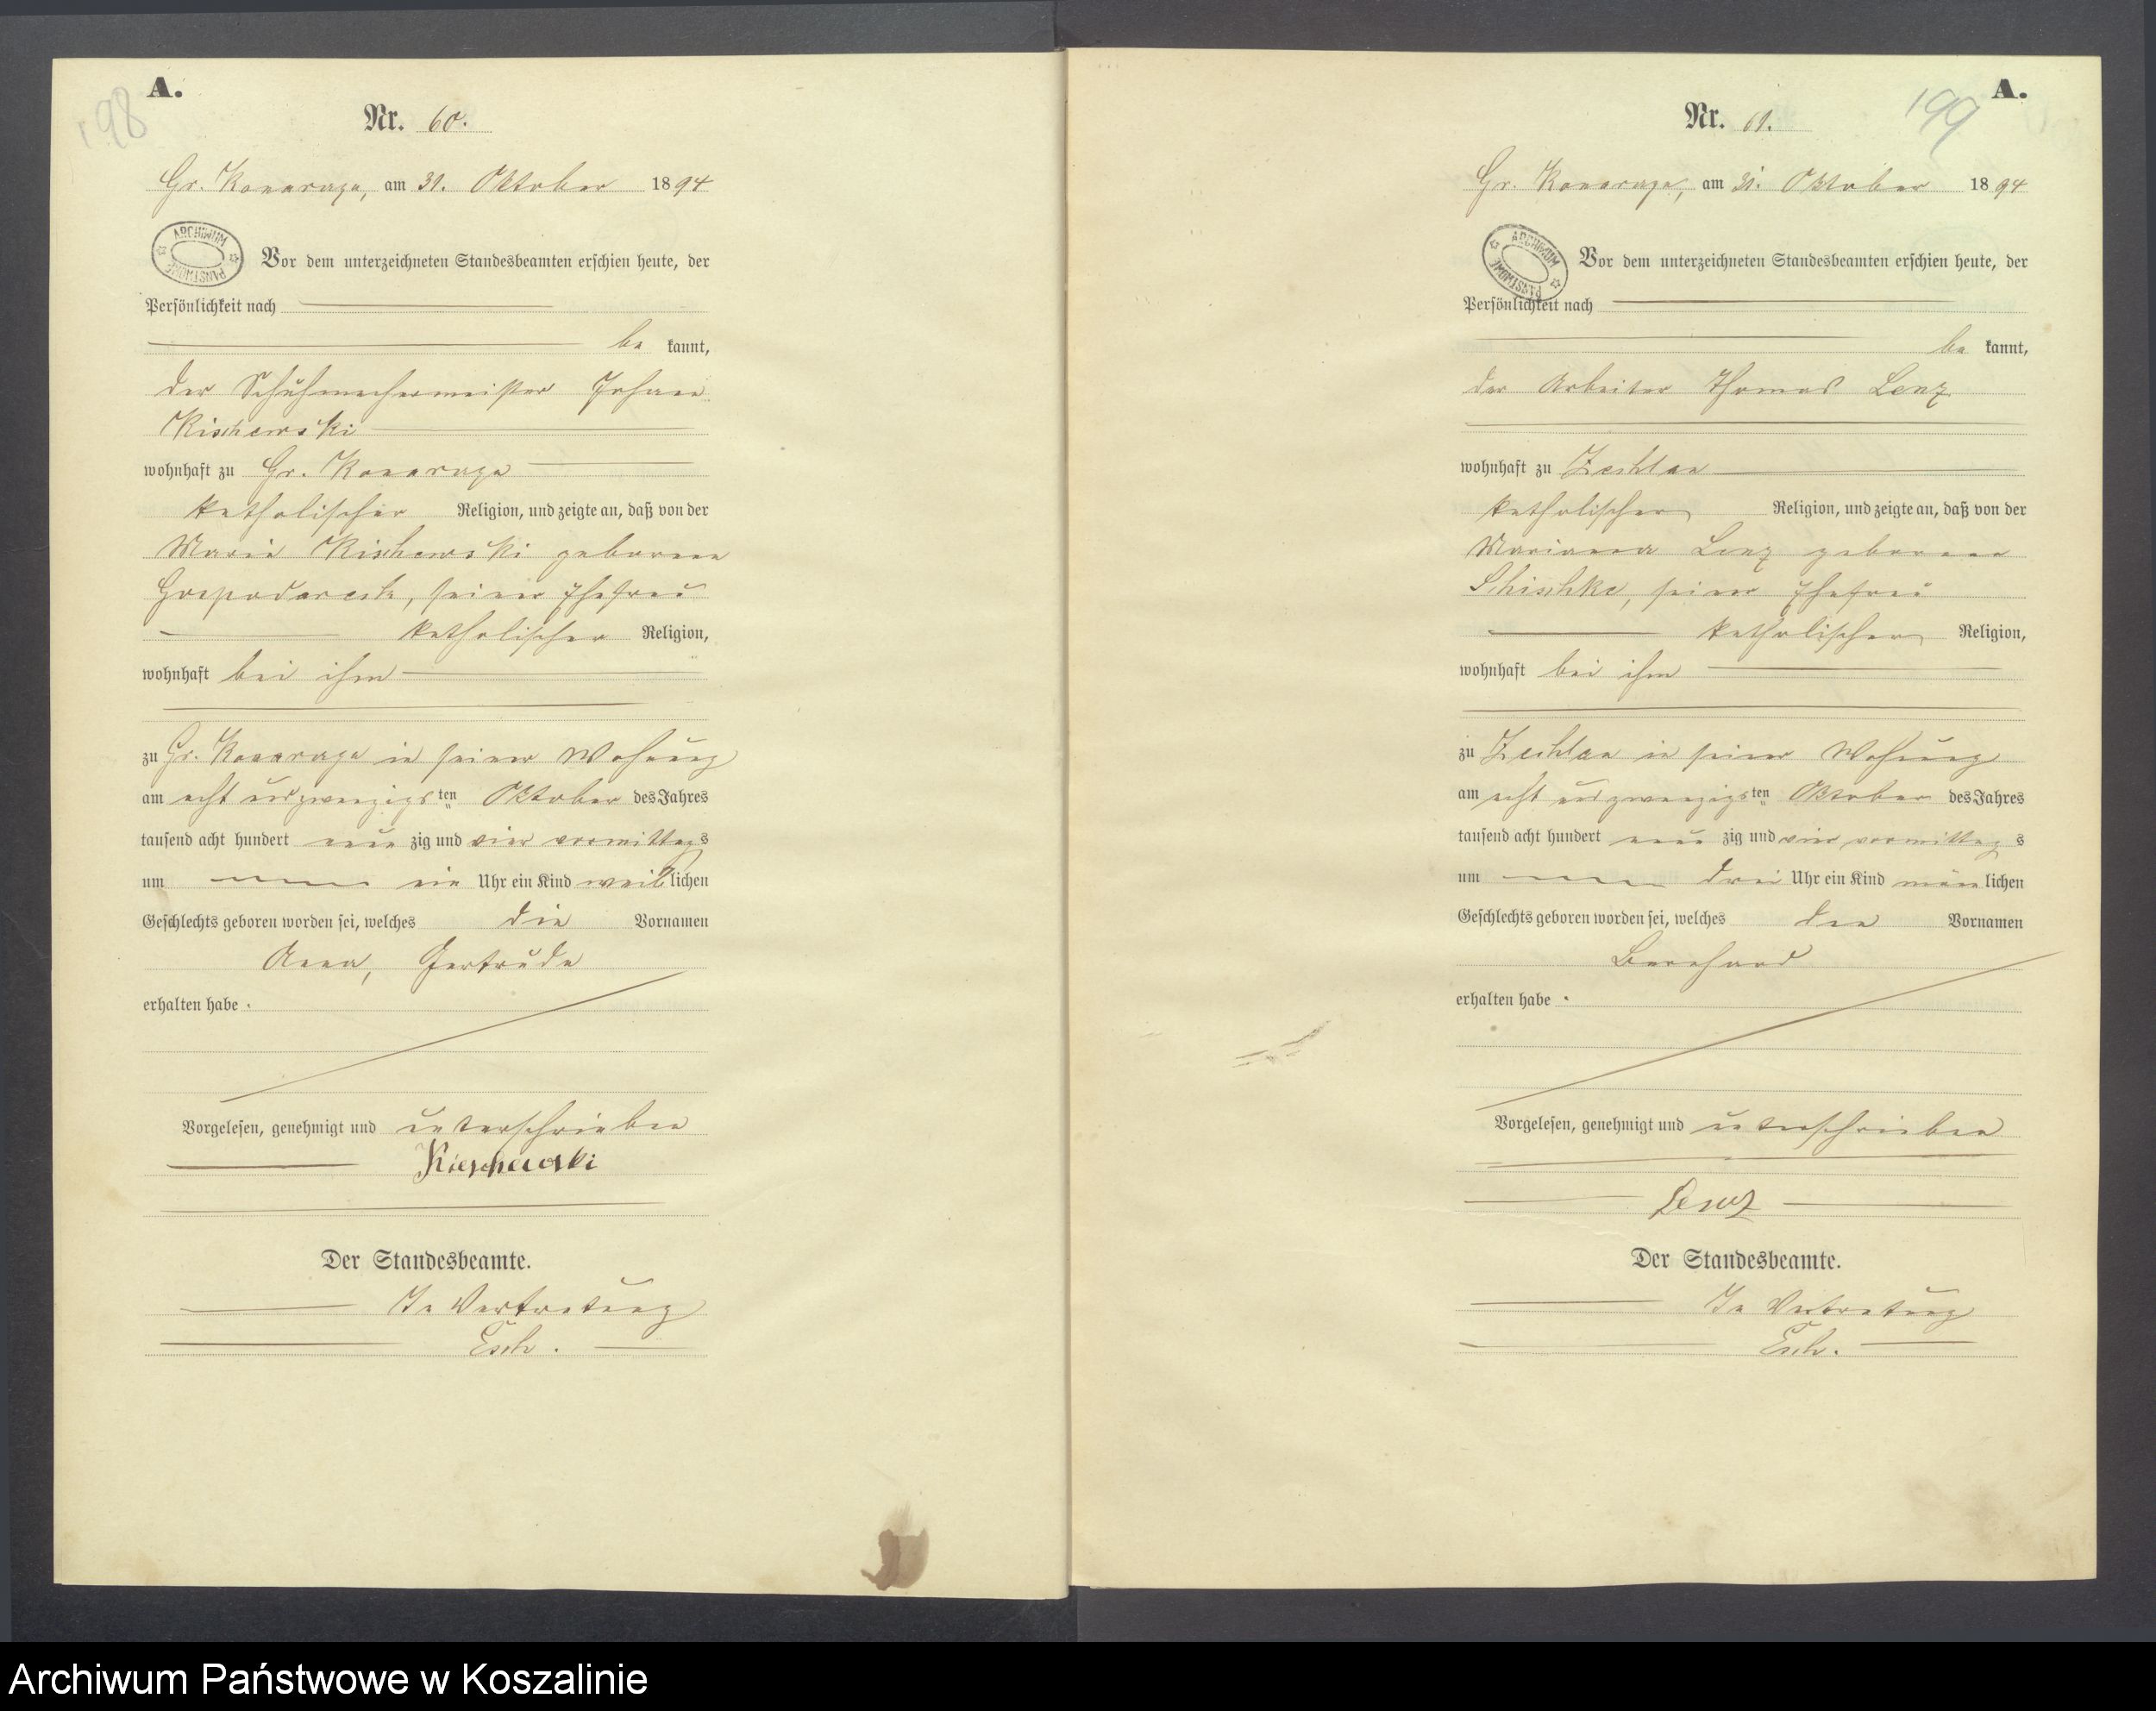 198
A.
Nr. 60.
Gr. Konarczyn, am 31. Oktober 1894
ARCHIWUM PAŃSTWOWE
Vor dem unterzeichneten Standesbeamten erschien heute, der
Persönlichkeit nach
be kannt,
der Schuhmachermeister Johann
Kischewski
wohnhaft zu Gr. Konarczyn
katholischer Religion, und zeigte an, daß von der
Marie Kischewski geborene
seiner Ehefrau
katholischer Religion,
wohnhaft bei ihm
zu Gr. Konarczyn in seiner Wohnung
am acht und zwanzigsten Oktober des Jahres
tausend acht hundert neun zig und vier vormittags
um ein Uhr ein Kind weiblichen
Geschlechts geboren worden sei, welches die Vornamen
Anna, Gertrude
erhalten habe.
Vorgelesen, genehmigt und unterschrieben
Kieschewski
Der Standesbeamte.
In Vertretung
Esch.
199
A.
Nr. 61.
Gr. Konarczyn, am 31. Oktober 1894
ARCHIWUM PAŃSTWOWE
Vor dem unterzeichneten Standesbeamten erschien heute, der
Persönlichkeit nach
be kannt,
der Arbeiter Thomas Lenz
wohnhaft zu Zechlau
katholischer Religion, und zeigte an, daß von der
Marianna Lenz geborene
Schischke, seiner Ehefrau
katholischer Religion,
wohnhaft bei ihm
zu Zechlau in seiner Wohnung
am acht und zwanzigsten Oktober des Jahres
tausend acht hundert neun zig und vier vormittags
um drei Uhr ein Kind männlichen
Geschlechts geboren worden sei, welches den Vornamen
Bernhard
erhalten habe.
Vorgelesen, genehmigt und unterschrieben
Lenz
Der Standesbeamte.
In Vertretung
Esch.
Archiwum Państwowe w Koszalinie